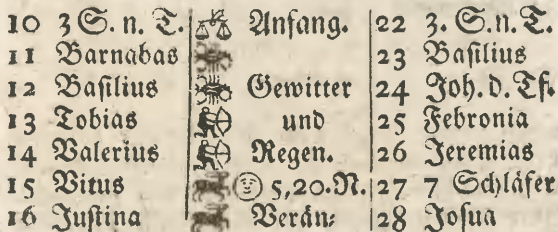 10 3 S. n. T. Anfang. 22 3. S. n. T.
11 Barnabas 23 Baſilius
12 Baſilius Gewitter 24 Joh. d. Tf.
13 Tobias und 25 Febronia
14 Valerius Regen. 26 Jeremias
15 Vitus 5,20. N. 27 7 Schläfer
16 Juſtina Verän⸗ 28 Joſua